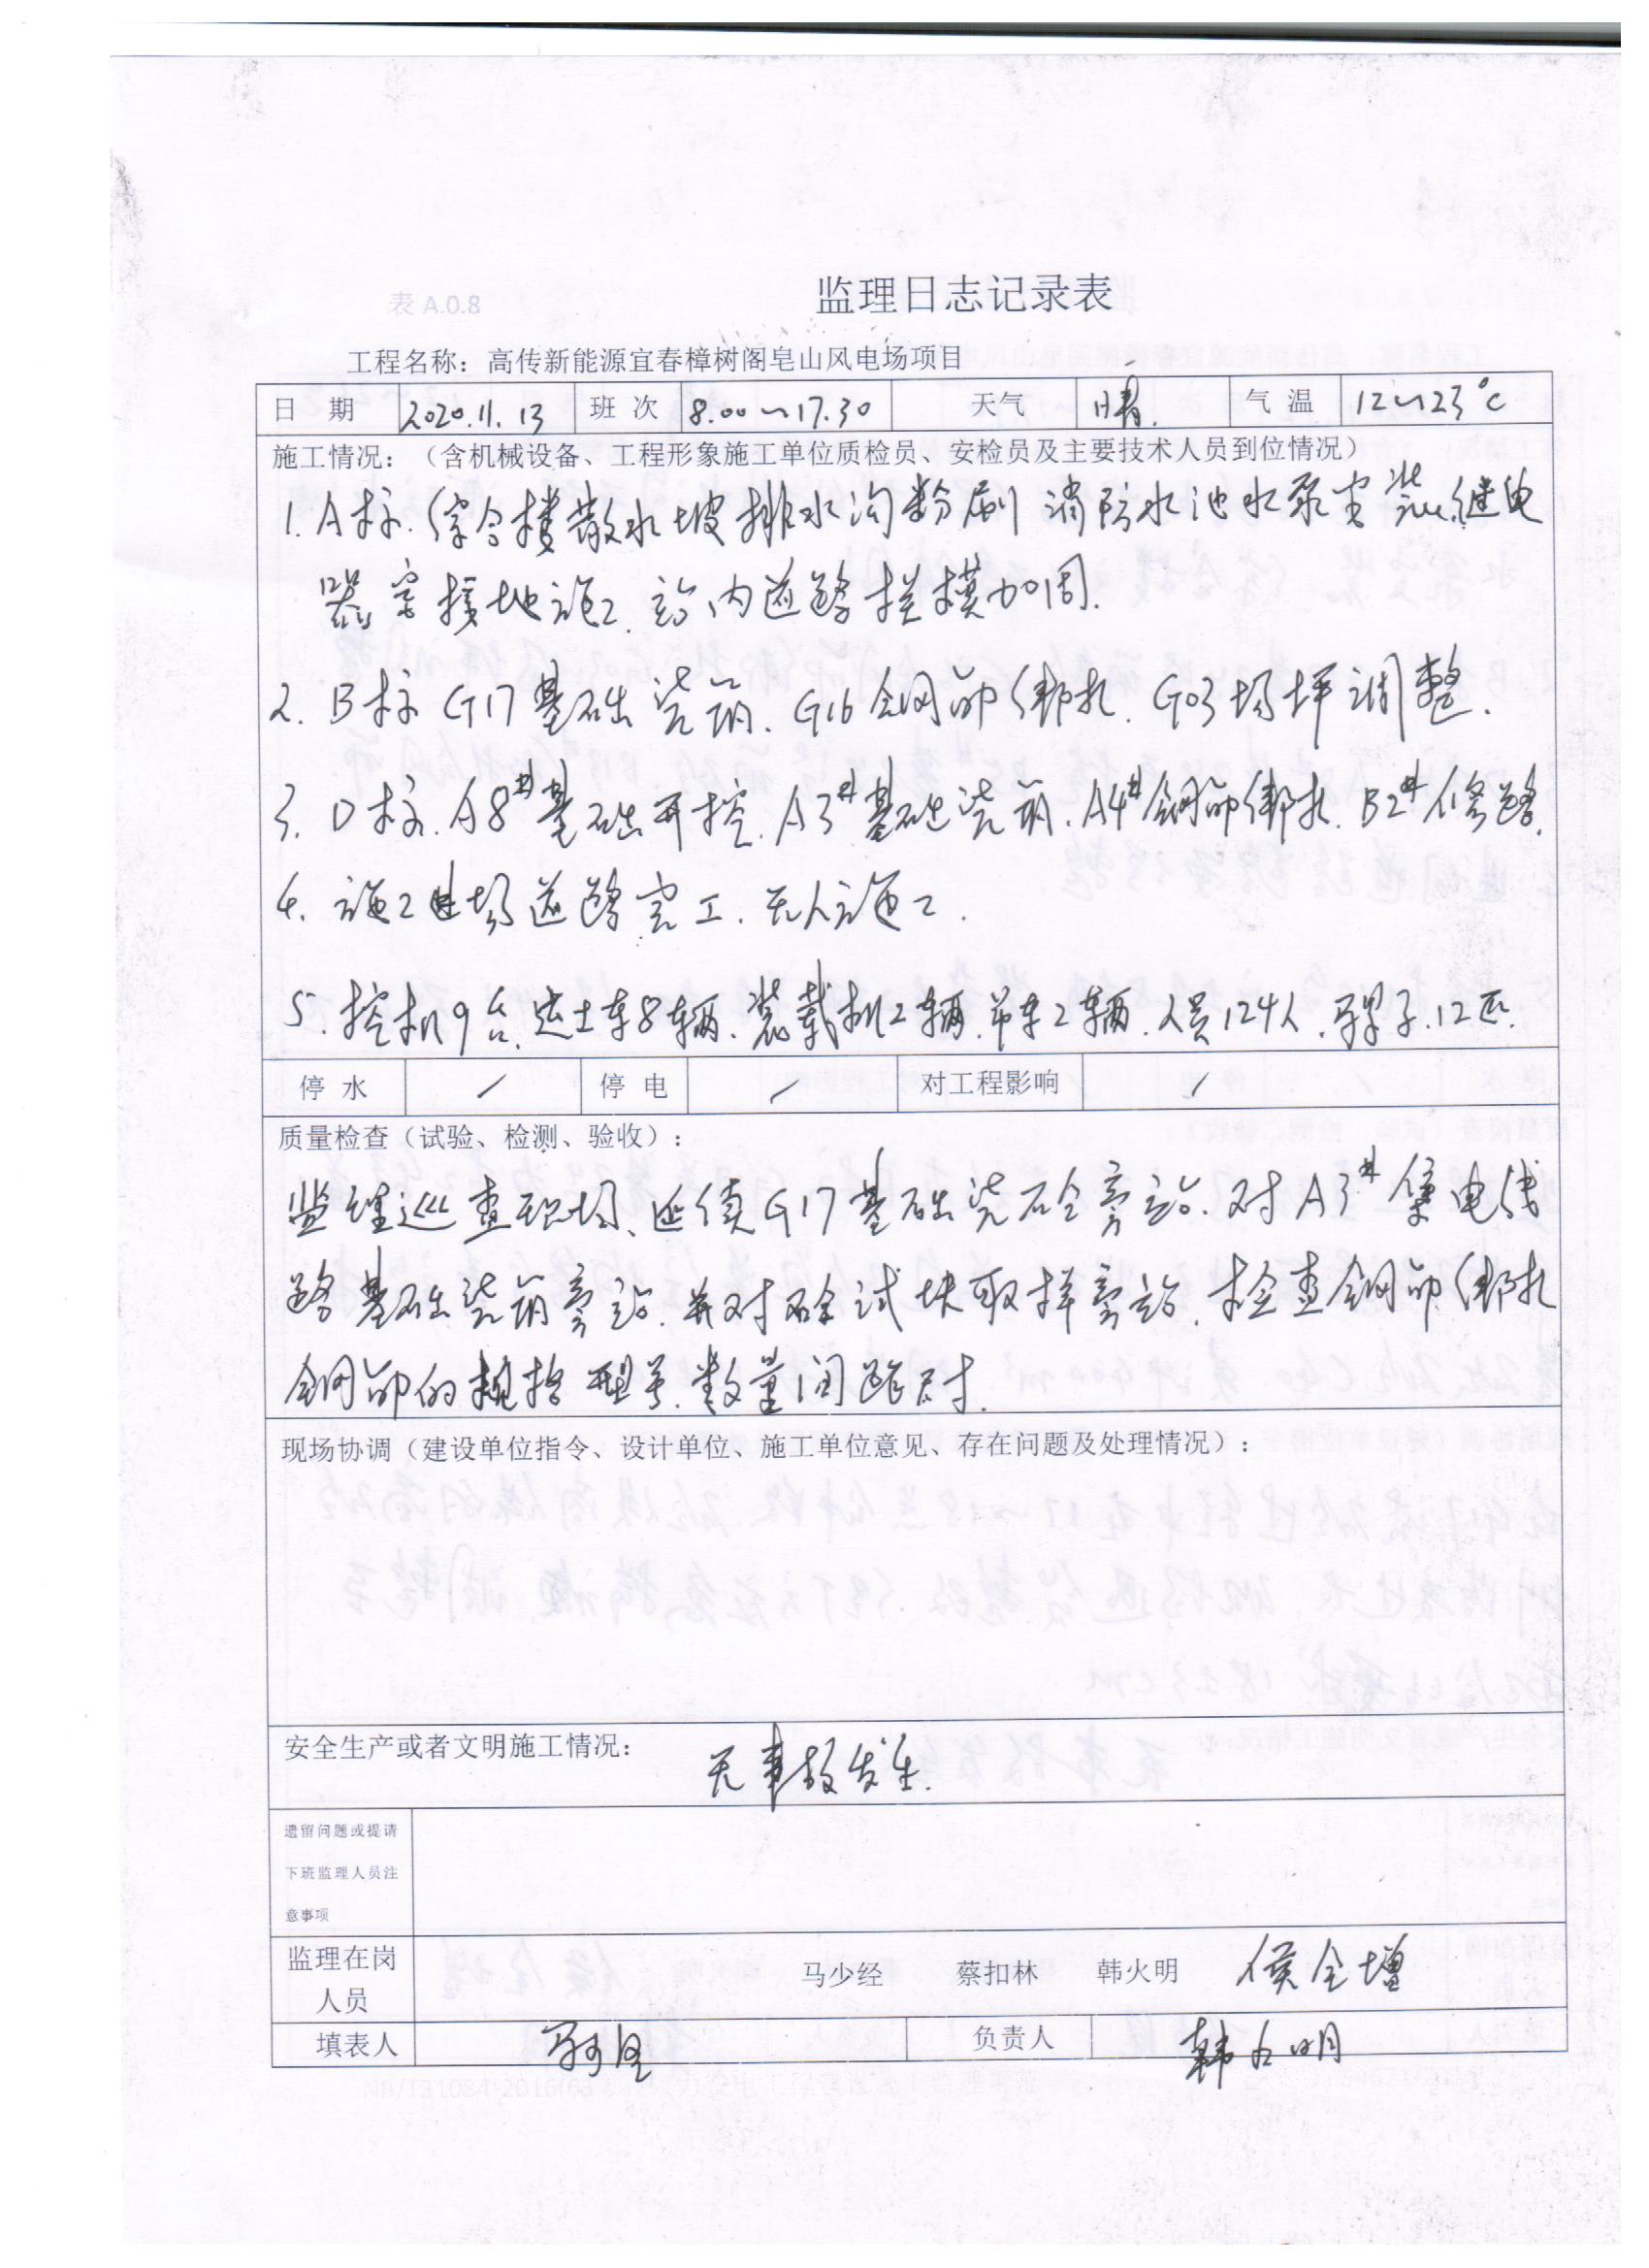 监理日志记录表
表 A.0.8
工程名称：高传新能源宜春樟树阁皂山风电场项目
日 期 2020.11.13 班 次 8.00～17.30 天气 晴. 气 温 12～23℃
施工情况：（含机械设备、工程形象施工单位质检员、安检员及主要技术人员到位情况）
1. A标.综合楼散水坡排水沟粉刷 消防水池水泵安装.继电
器室接地施工.站内道路拦模加固.
2. B标 G17基础浇筑. G16钢筋绑扎. G03场坪调整.
3. D标. A8#基础开挖. A3#基础浇筑. A4#钢筋绑扎. B2#修路.
4. 施工进场道路完工.无人施工.
5. 挖机9台.运土车8辆.装载机2辆.吊车2辆.人员124人.骡子.12匹.
停 水 / 停 电 / 对工程影响 /
质量检查（试验、检测、验收）：
监理巡查现场、延续G17基础浇砼旁站.对A3#集电线
路基础浇筑旁站.并对砼试块取样旁站.检查钢筋绑扎
钢筋的规格型号.数量间距尺寸.
现场协调（建设单位指令、设计单位、施工单位意见、存在问题及处理情况）：
安全生产或者文明施工情况： 无事故发生.
遗留问题或提请
下班监理人员注
意事项
监理在岗
人员 马少经 蔡扣林 韩火明 侯全增
填表人 负责人 韩火明